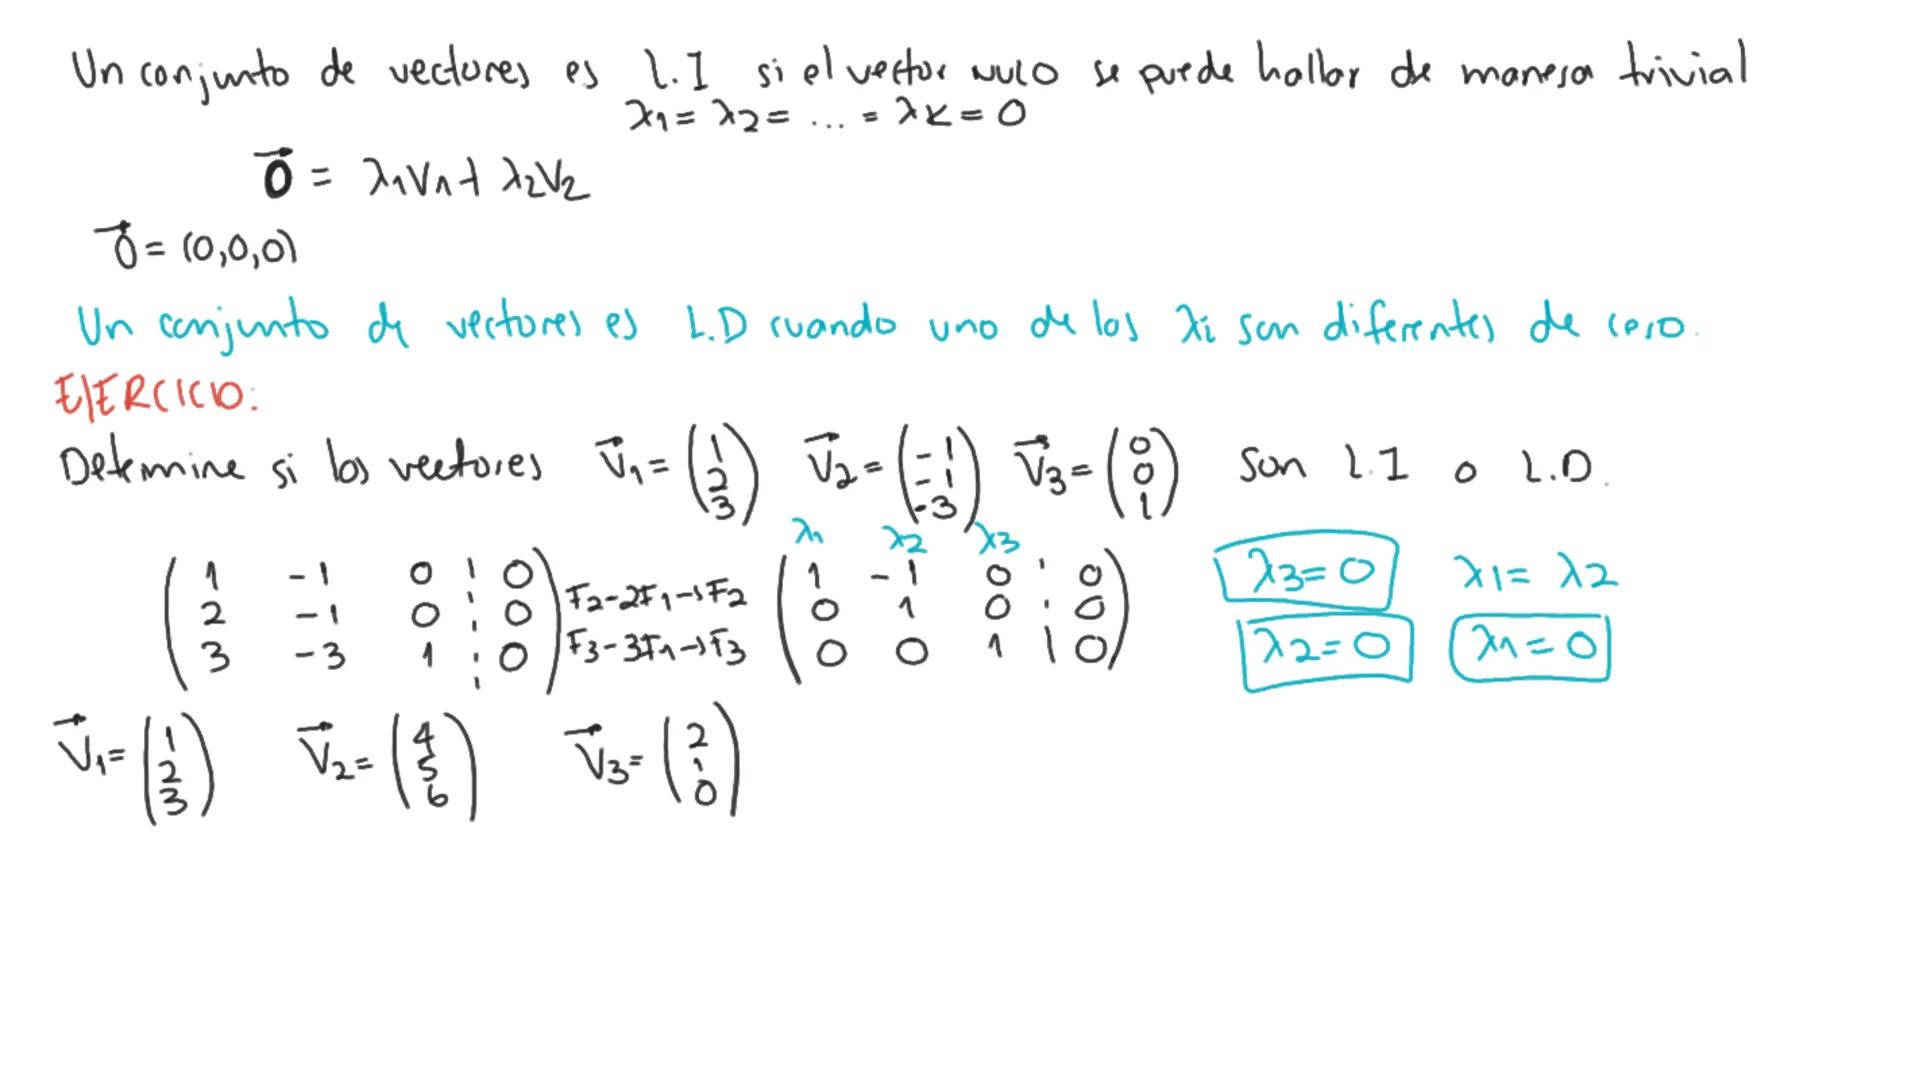 Un conjunto de vectores es L.I si el vector NULO se puede hallar de manera trivial
λ1 = λ2 = ... = λK = 0
0⃗ = λ1V1 + λ2V2
0⃗ = (0,0,0)
Un conjunto de vectores es L.D cuando uno de los λi son diferentes de cero.
EJERCICIO:
Determine si los vectores V⃗1 = (1 2 3) V⃗2 = (-1 -1 -3) V⃗3 = (0 0 1) Son L.I o L.D.
λ1 λ2 λ3
1 -1 0 ¦ 0 F2-2F1→F2 1 -1 0 ¦ 0 λ3=0 λ1=λ2
2 -1 0 ¦ 0 F3-3F1→F3 0 1 0 ¦ 0 λ2=0 λ1=0
3 -3 1 ¦ 0 0 0 1 | 0
V⃗1 = (1 2 3) V⃗2 = (4 5 6) V⃗3 = (2 1 0)